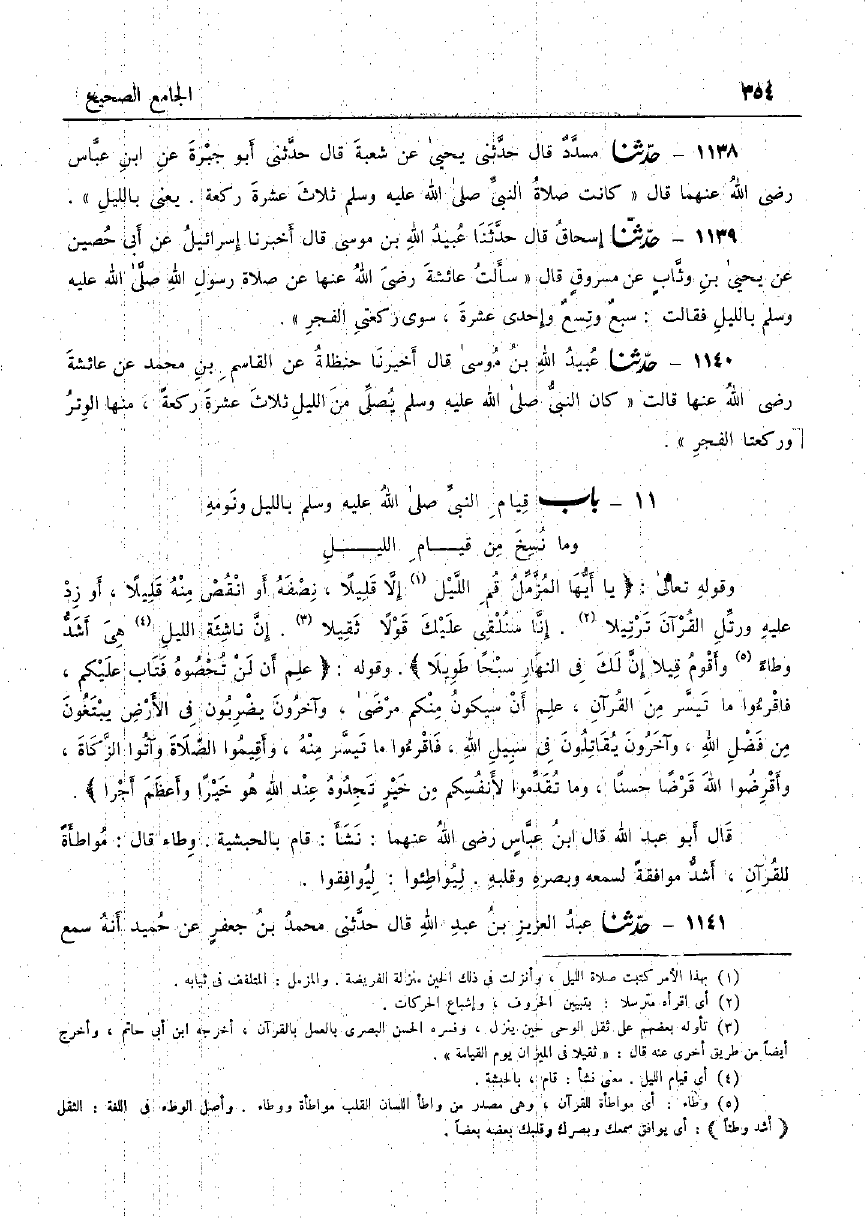 ٣٥٤ الجامع الصحيح
١١٣٨ - حدّثنا مسدَّدٌ قال حدَّثنى يحيىٰ عن شعبةَ قال حدَّثنى أَبو جمْرةَ عنِ ابنِ عبَّاس
رضى اللهُ عنهما قال « كانت صلاةُ النبيِّ صلىٰ الله عليه وسلم ثلاثَ عشرةَ ركعة . يعنى بالليلِ » .
١١٣٩ - حدّثنّا إسحاقُ قال حدَّثَنَا عُبيدُ اللهِ بن موسى قال أَخبرنا إسرائيلُ عن أَبى حُصين
عن يحيىٰ بنِ وثَّابٍ عن مسروقٍ قال « سأَلتُ عائشةَ رضىَ اللهُ عنها عن صلاة رسولِ اللهِ صلَّىٰ الله عليه
وسلم بالليلِ فقالت : سبعٌ وتِسعٌ وإحدى عشرةَ ، سوى ركعتىِ الفجرِ » .
١١٤٠ - حدّثنا عُبيدُ اللهِ بنُ مُوسىٰ قال أَخبرنَا حنظلةُ عن القاسم ِ بنِ محمد عن عائشةَ
رضى اللهُ عنها قالت « كان النبيُّ صلىٰ الله عليه وسلم يُصلِّى منَ الليلِ ثلاثَ عشرةَ ركعةً ، منها الوِترُ
وركعتا الفجرِ » .
١١ - باب قِيام ِ النبىِّ صلىٰ اللهُ عليه وسلم بالليل ونَومهِ
وما نُسِخَ مِن قيـام ِ الليـلِ
وقولهِ تعالىٰ : ﴿ يا أَيُّهَا المُزَّمِّلُ قُمِ اللَّيْل (١) إلَّا قَلِيلًا ، نِصْفَهُ أَو انْقُصْ مِنْهُ قَلِيلًا ، أَو زِدْ
عليهِ ورتِّلِ القُرْآنَ تَرْتِيلا (٢) . إنَّا سَنُلْقِى علَيْكَ قَوْلًا ثَقِيلا (٣) . إنَّ ناشئَةَ الليلِ (٤) هِىَ أَشَدُّ
وطاءً (٥) وأَقْومُ قِيلا إنَّ لَكَ فِى النهَارِ سبْحًا طَوِيلَا ﴾ . وقوله : ﴿ علِم أَن لَنْ تُحْصُوهُ فَتَاب علَيْكم ،
فاقْرءُوا ما تَيسَّر مِنَ القُرآنِ ، علِم أَنْ سيكونُ مِنْكم مرْضَىٰ ، وآخرُونَ يضْرِبُون فِى الأَرْضِ يبْتَغُونَ
مِن فَضْلِ اللهِ ، وآخَرُونَ يُقَاتِلُونَ فِى سَبِيلِ اللهِ ، فَاقْرءُوا ما تَيسَّر مِنْهُ ، وأَقِيمُوا الصَّلَاةَ وآتُوا الزَّكَاةَ ،
وأَقْرِضُوا اللهَ قَرْضًا حسنًا ، وما تُقَدِّموا لأَنفُسِكم مِن خَيْرٍ تَجِدُوهُ عِنْد اللهِ هُو خَيْرًا وأَعظَمَ أَجْرا ﴾ .
قَال أَبو عبد الله قال ابنُ عبَّاسٍ رضى اللهُ عنهما : نَشَأَ : قام بالحبشية . وِطاء قال : مُواطأَةً
للقُرآنِ ، أَشدُّ موافقةً لسمعه وبصرهِ وقلبهِ . لِيُواطِئوا : لِيُوافِقوا .
١١٤١ - حدّثنا عبدُ العزيز بنُ عبدِ اللهِ قال حدَّثنى محمدُ بنُ جعفرٍ عن حُميد أَنهُ سمع
(١) بهذا الأمر كتبت صلاة الليل ، وأنزلت فى ذلك الحين منزلة الفريضة . والمزمل : المتلفف فى ثيابه .
(٢) أى اقرأه مترسلا : بتبيين الحروف ، وإشباع الحركات .
(٣) تأوله بعضهم على ثقل الوحى حين ينزل ، وفسره الحسن البصرى بالعمل بالقرآن ، أخرجه ابن أبى حاتم ، وأخرج
أيضاً من طريق أخرى عنه قال : « ثقيلا فى الميزان يوم القيامة » .
(٤) أى قيام الليل . معنى نشأ : قام ، بالحبشة .
(٥) وطاء : أى مواطأة للقرآن ، وهى مصدر من واطأ اللسان القلب مواطأة ووطاء . وأصل الوطء فى اللغة : الثقل
﴿ أشد وطئاً ﴾ : أى يوافق سمعك وبصرك وقلبك بعضه بعضاً .